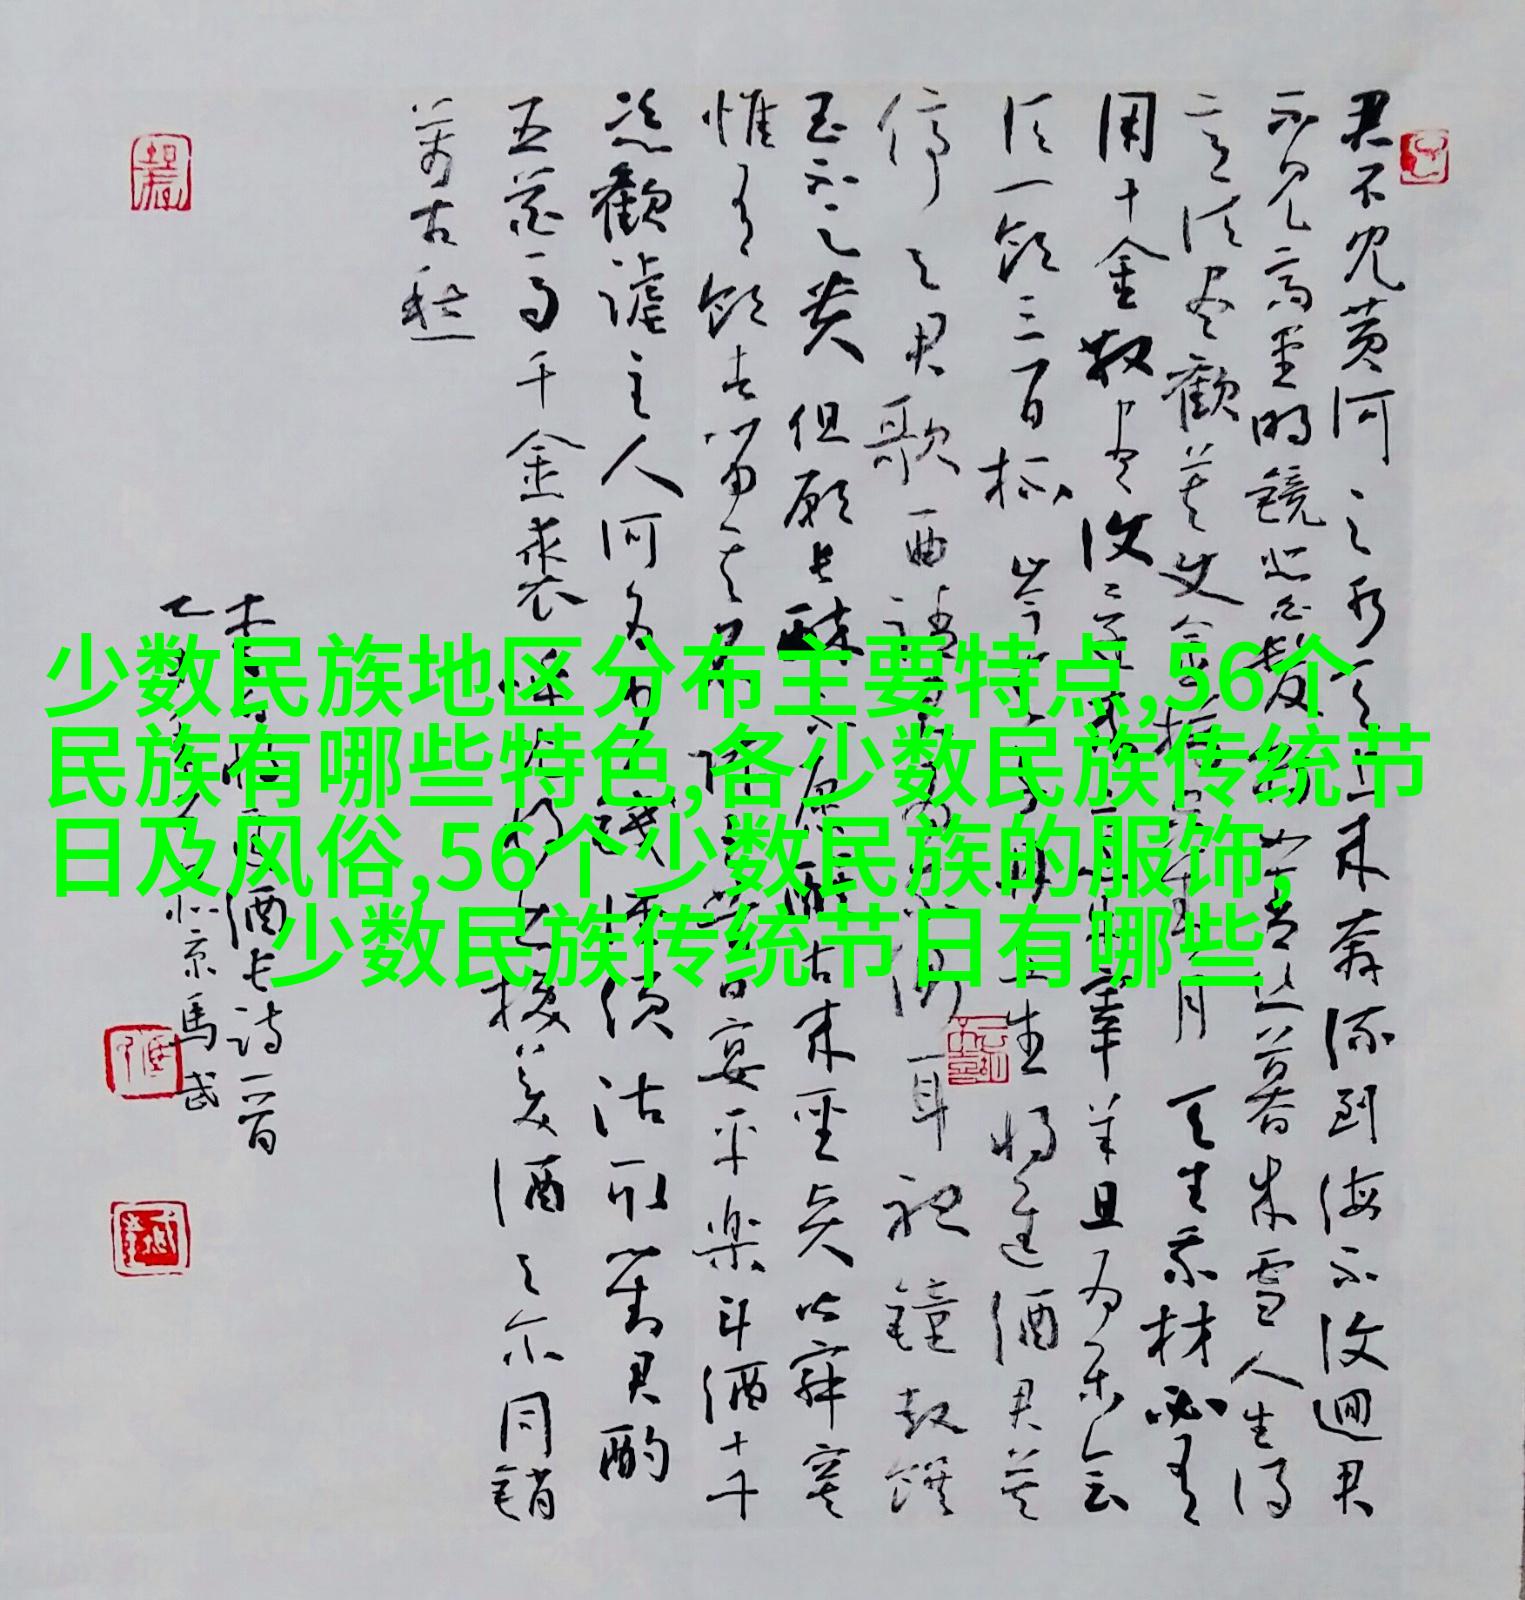 少数民族地区分布主要特点,56个
民族有哪些特色,各少数民族传统节
日及风俗,56个少数民族的服饰,
少数民族传统节日有哪些
君不見黄河之水天上来奔流到海不復迴君
不見高堂明鏡悲白髮朝如青丝暮成雪人生得
意須尽歡莫使金樽空对月天生我材必有
用千金散尽復宰羊且为乐会
須一飲三百杯岑夫子丹丘生将進酒君莫
停与君歌一曲請君为我耳聽鐘鼓饌
玉不足贵但願長醉不愿醒古来聖贤皆寂寞
惟有飲者留其名陈王昔日宴平樂斗酒十千
恣歡謔主人何为言少錢径须沽取對君酌
五花马千金裘呼儿将出换美酒与尔同銷
萬古愁
酒長詩一首
京馬武